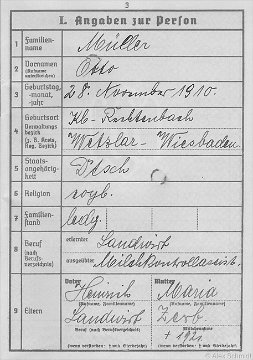 3
I. Angaben zur Person
1 Familien-
name
Müller
2 Vornamen
(Rufname
unterstreichen)
Otto
3 Geburtstag,
-monat,
-jahr
28. November 1910.
4 Geburtsort
Verwaltungs-
bezirk
(z. B. Kreis,
Reg.-Bezirk)
Kl. Rechtenbach
Wetzlar - Wiesbaden.
5 Staats-
angehörig-
keit
Dtsch
6 Religion
evgl.
7 Familien-
stand
ledg.
8 Beruf
(nach
Berufs-
verzeichnis)
erlernter
Landwirt
ausgeübter
Milchkontrollassist.
9 Eltern
Vater
Heinrich
(Rufname, Familienname)
Landwirt
Beruf (nach Berufsverzeichnis)
(wenn verstorben: † und Sterbejahr)
Mutter
Maria
(Rufname, Familienname)
Zerb
Mädchenname
(wenn verstorben: † und Sterbejahr)
© Alex Schmidt